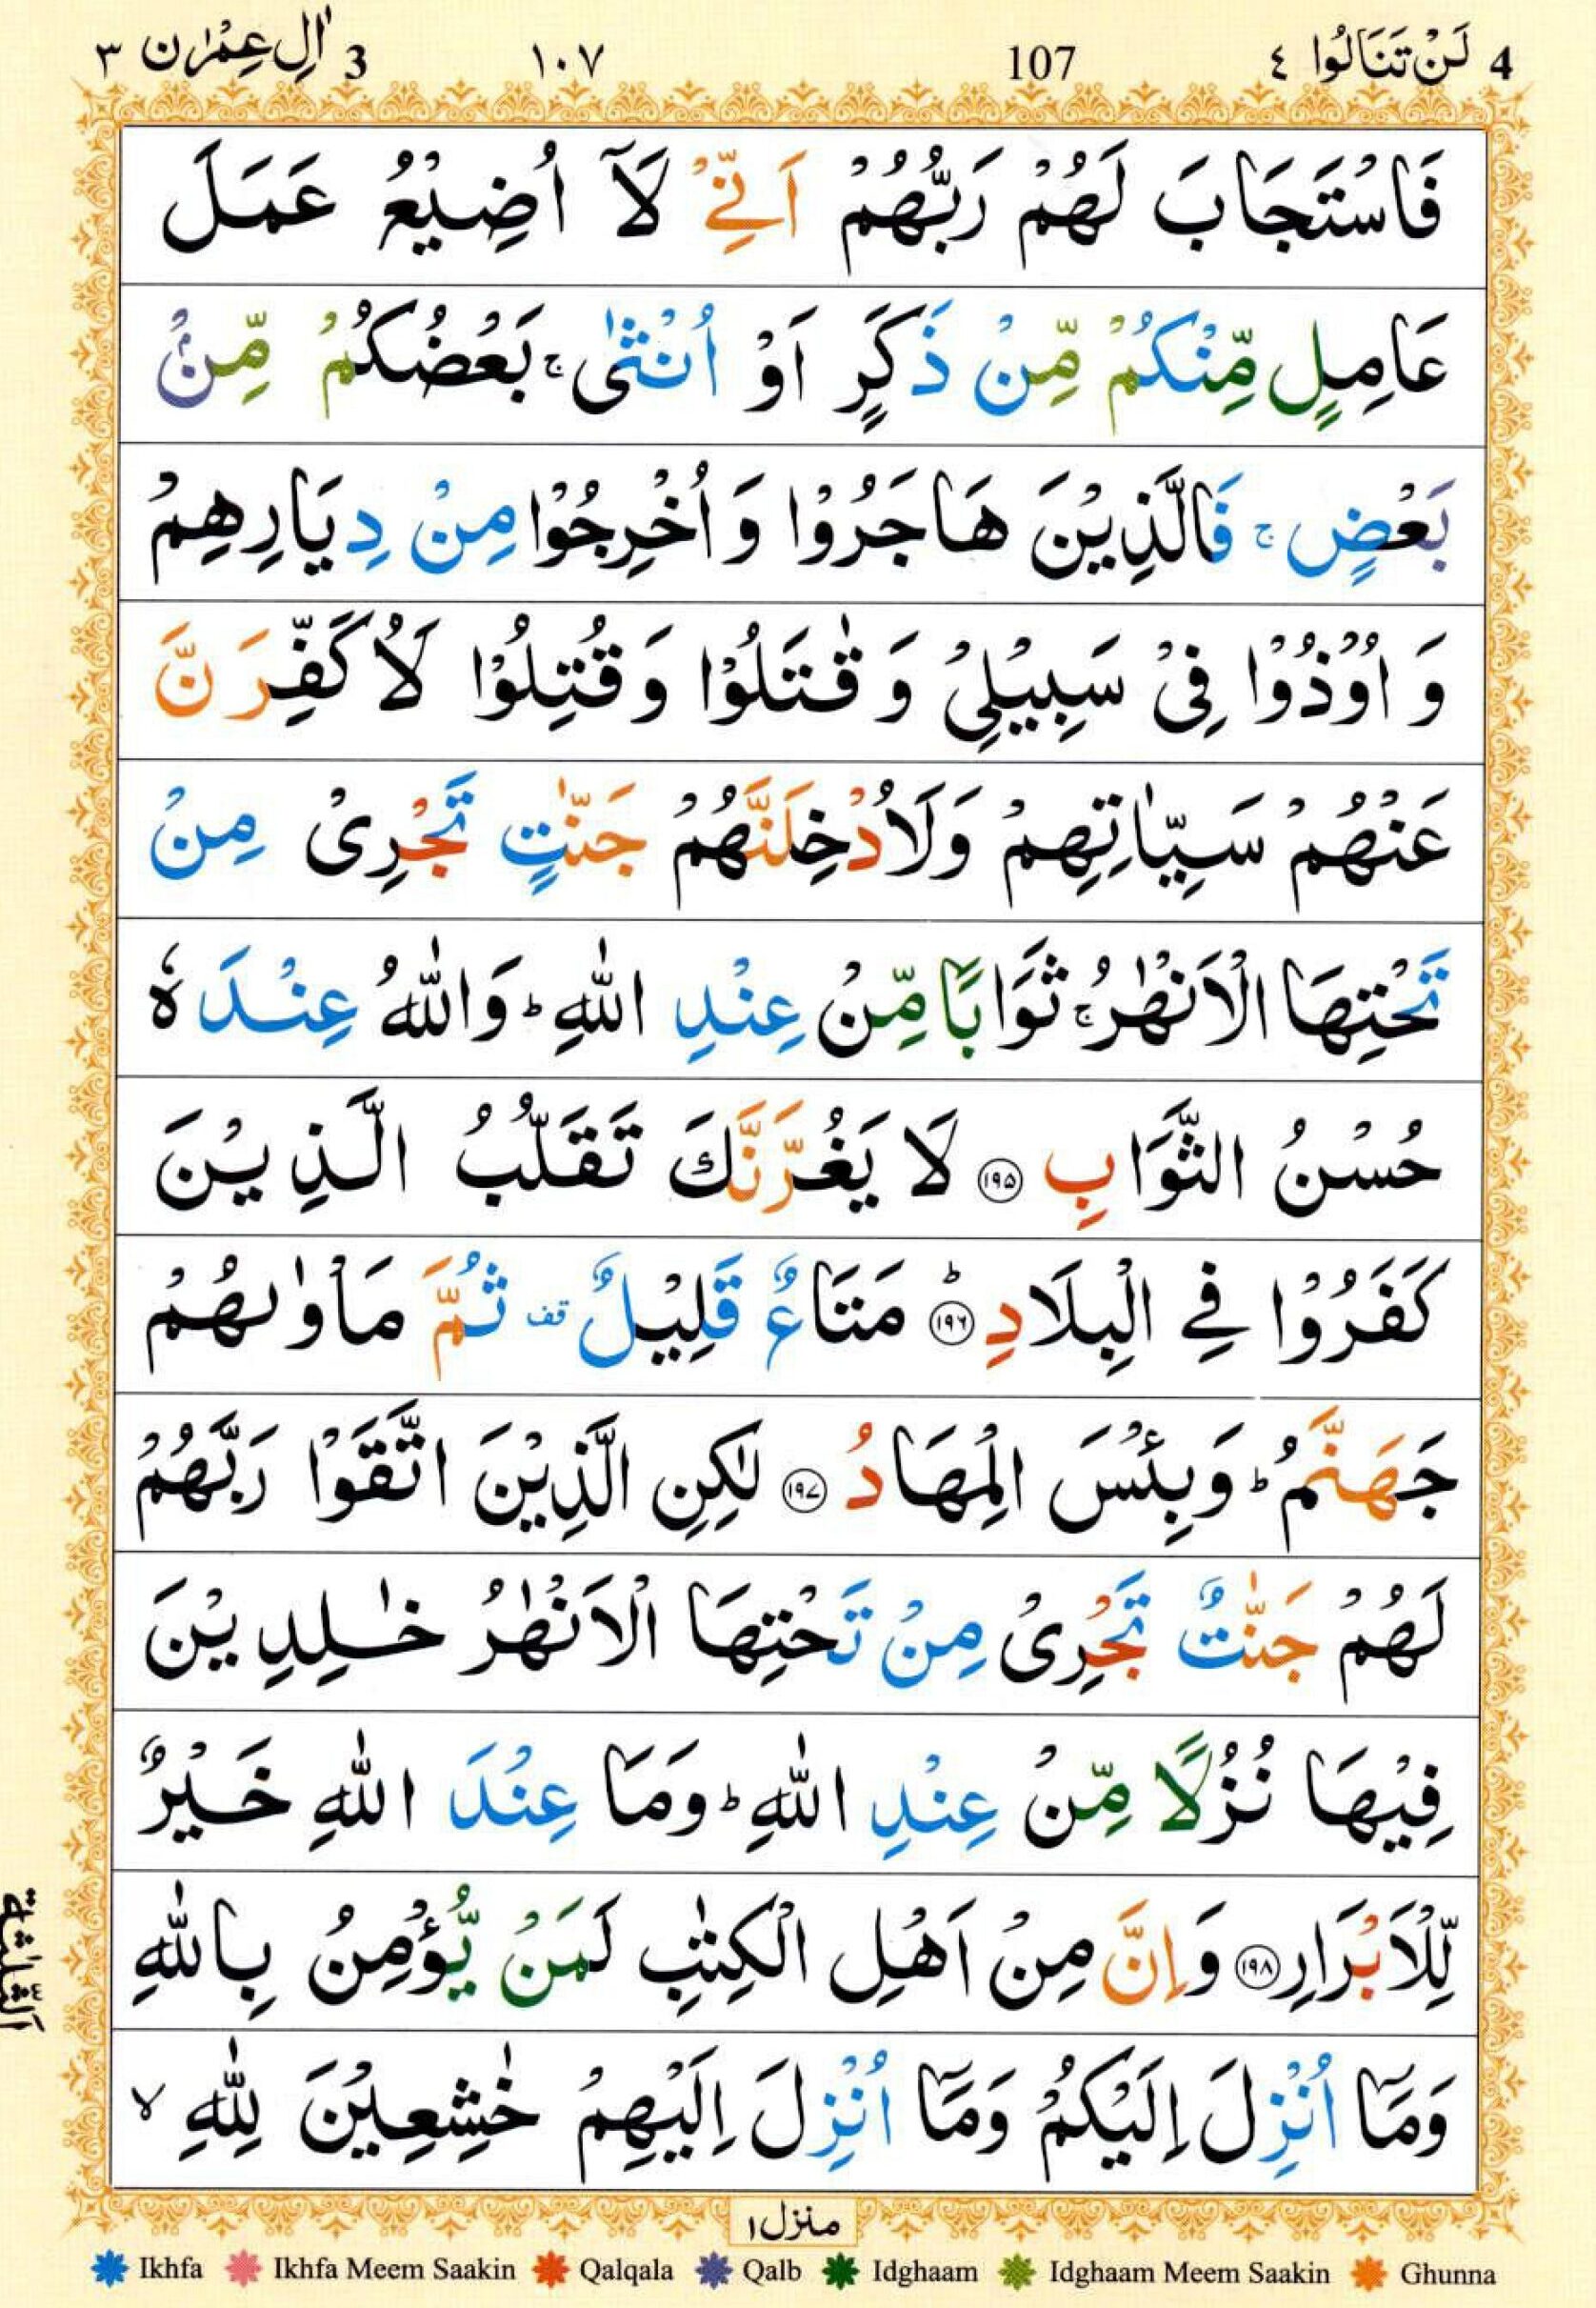 4 لَنْ تَنَالُوا ٤ 107 ١٠٧ 3 اٰلِ عِمْرٰن ٣
فَاسْتَجَابَ لَهُمْ رَبُّهُمْ اَنِّيْ لَآ اُضِيْعُ عَمَلَ
عَامِلٍ مِّنْكُمْ مِّنْ ذَكَرٍ اَوْ اُنْثٰى ۚ بَعْضُكُمْ مِّنْۢ
بَعْضٍ ۚ فَالَّذِيْنَ هَاجَرُوْا وَ اُخْرِجُوْا مِنْ دِيَارِهِمْ
وَ اُوْذُوْا فِىْ سَبِيْلِىْ وَ قٰتَلُوْا وَ قُتِلُوْا لَاُ كَفِّرَ نَّ
عَنْهُمْ سَيِّاٰتِهِمْ وَلَاُدْخِلَنَّهُمْ جَنّٰتٍ تَجْرِىْ مِنْ
تَحْتِهَا الْاَنْهٰرُ ۚ ثَوَابًا مِّنْ عِنْدِ اللّٰهِ ؕ وَاللّٰهُ عِنْدَهٗ
حُسْنُ الثَّوَابِ ۝۱۹۵ لَا يَغُرَّنَّكَ تَقَلُّبُ الَّذِيْنَ
كَفَرُوْا فِے الْبِلَادِ ؕ۝۱۹۶ مَتَاعٌ قَلِيْلٌ قف ثُمَّ مَاْوٰىهُمْ
جَهَنَّمُ ؕ وَبِئْسَ الْمِهَادُ ۝۱۹۷ لٰكِنِ الَّذِيْنَ اتَّقَوْا رَبَّهُمْ
لَهُمْ جَنّٰتٌ تَجْرِىْ مِنْ تَحْتِهَا الْاَنْهٰرُ خٰلِدِيْنَ
فِيْهَا نُزُلًا مِّنْ عِنْدِ اللّٰهِ ؕ وَمَا عِنْدَ اللّٰهِ خَيْرٌ
لِّلْاَبْرَارِ ۝۱۹۸ وَاِنَّ مِنْ اَهْلِ الْكِتٰبِ لَمَنْ يُّؤْمِنُ بِاللّٰهِ
وَمَآ اُنْزِلَ اِلَيْكُمْ وَمَآ اُنْزِلَ اِلَيْهِمْ خٰشِعِيْنَ لِلّٰهِ ۙ
اَلثَّلٰثَةُ
منزل ١
Ikhfa Ikhfa Meem Saakin Qalqala Qalb Idghaam Idghaam Meem Saakin Ghunna